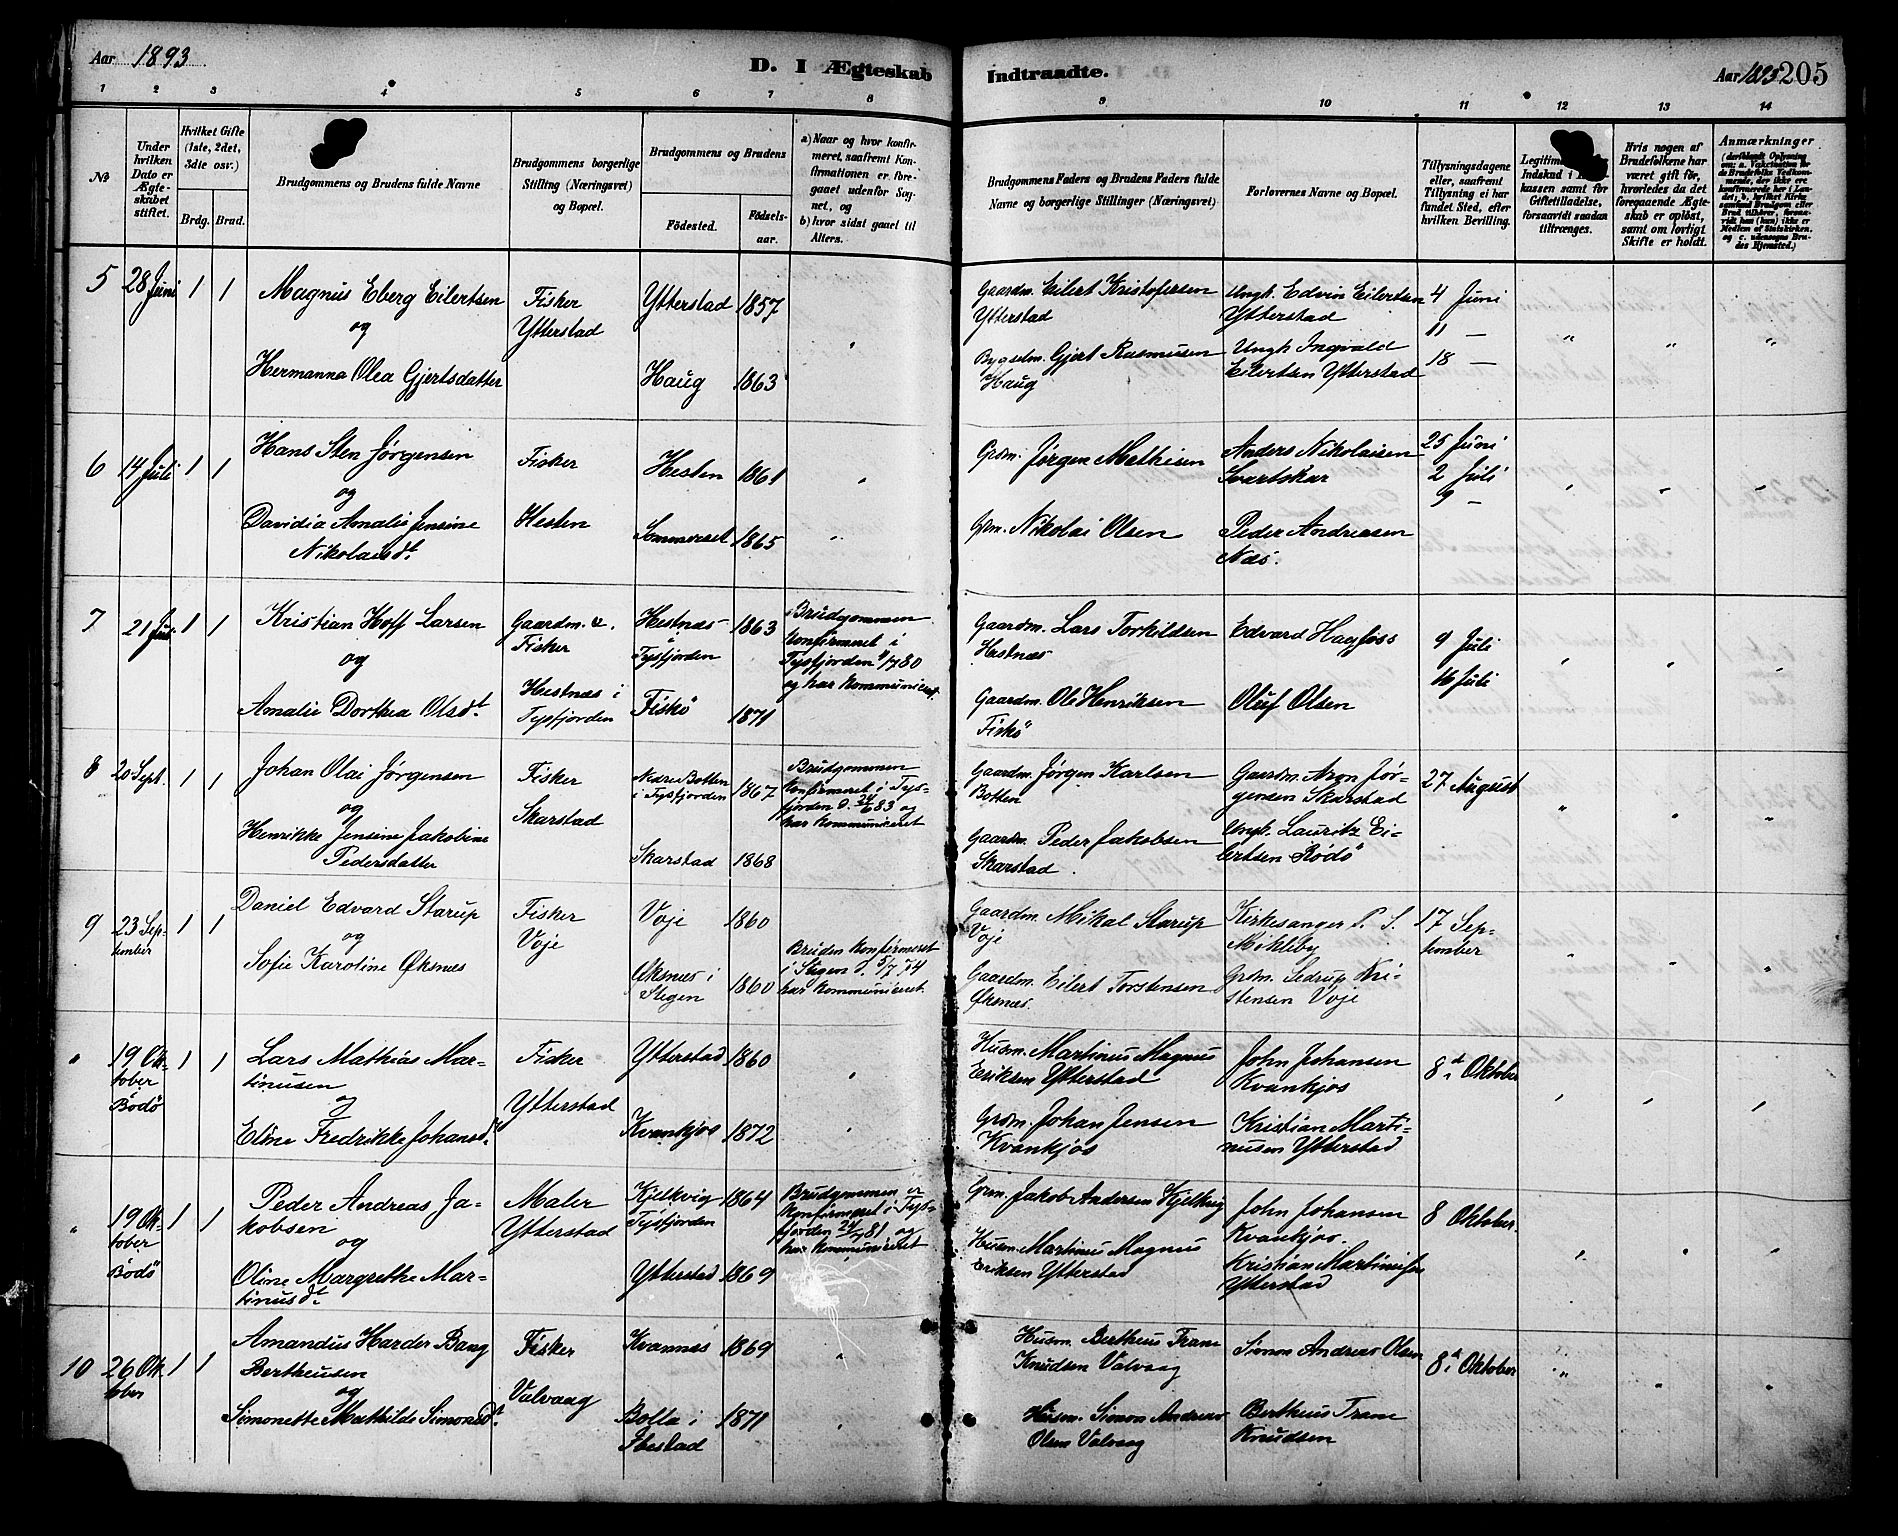 Aar 1893.
D. I Ægteskab
Indtraadte.
Aar 1893 205
1 2 3 4 5 6 7 8
9 10 11 12 13 14
No
Under
hvilken
Dato er
Ægte-
skabet
stiftet.
Hvilket Gifte
(1ste, 2det,
3die osv.)
Brdg. Brud.
Brudgommens og Brudens fulde Navne
Brudgommens borgerlige
Stilling (Næringsvei)
og Bopæl.
Brudgommens og Brudens
Födested.
Födsels-
aar.
a) Naar og hvor konfir-
meret, saafremt Kon-
firmationen er fore-
gaaet udenför Sog-
net, og
b) hvor sidst gaaet til
Alters.
Brudgommens Faders og Brudens Faders fulde
Navne og borgerlige Stillinger (Næringsvei)
Forlovernes Navne og Bopæl.
Tillysningsdagene
eller, saafremt
Tillysning ei har
fundet Sted, efter
hvilken Bevilling.
Legitime
Indskud i
kassen samt for
Giftetilladelse,
forsaavidt saadan
tiltrænges.
Hvis nogen af
Brudefolkene har
været gift för,
hvorledes da det
foregaaende Ægte-
skab er oplöst,
samt om lovligt
Skifte er holdt.
Anmærkninger
5
28 Juni
1 1
Magnus Eberg Eilertsen
og
Hermanna Olea Gjertsdatter
Fisker
Ytterstad
Ytterstad 1857
Haug 1863
Gaardm. Eilert Kristofersen
Ytterstad
Bygselm. Gjert Rasmusen
Haug
Ungk. Edvin Eilertsen
Ytterstad
Ungk Ingvald
Eilertsen Ytterstad
4 Juni
11 —
18 —
6
14 Juli
1 1
Hans Sten Jørgensen
og
Davidia Amalie Jensine
Nikolaisdt.
Fisker
Hesten
Hesten 1861
Sommerset 1865
Grdm. Jørgen Mathisen
Grdm. Nikolai Olsen
Anders Nikolaisen
Svartskar
Peder Andreasen
Næs.
25 Juni
2 Juli
9 —
7
21 Juli
1 1
Kristian Hoff Larsen
og
Amalie Dorthea Olsdt.
Gaardm. &.
Fisker
Hestnæs i
Tysfjorden
Hestnæs
i
Tysfjorden 1863
Fiskö 1871
Brudgommen
konfirmeret i
Tysfjorden 11/7 80
og har kommuniceret.
Gaardm. Lars Torkildsen
Hestnæs
Gaardm. Ole Henriksen
Fiskö
Edvard Hagfoss
Oluf Olsen
9 Juli
16 Juli
8
20 Sept.
1 1
Johan Olai Jørgensen
og
Henrikke Jensine Jakobine
Pedersdatter
Fisker
Skarstad
Nedre Botten
i Tysfjorden 1867
Skarstad 1868
Brudgommen
konfirmeret i Tys-
fjorden d. 24/6 83 og
har kommuniceret
Gaardm. Jørgen Karlsen
Botten
Gaardm. Peder Jakobsen
Skarstad
Gaardm. Aron Jør-
gensen Skarstad
Ungk. Lauritz Ei-
lertsen Rödö
27 August
9
23 Sep-
tember
1 1
Daniel Edvard Starup
og
Sofie Karoline Øksnes
Fisker
Voje
Voje 1860
Øksnes i
Stegen 1860
Bruden konfirmeret
i Stegen d. 5/7 74
har kommuniceret.
Gaardm. Mikal Starup
Voje
Gaardm. Eilert Torstensen
Øksnes.
Kirkesanger P. S.
Mikleby
Grdm. Sedrup Kri-
stensen Voje
17 Sep-
tember
"
19 Ok-
tober
Bodö
1 1
Lars Mathias Mar-
tinusen
og
Eline Fredrikke Johansdt.
Fisker
Ytterstad
Ytterstad 1860
Kvankjos 1872
Husm. Martinus Magnus
Eriksen Ytterstad
Grdm. Johan Jensen
Kvankjos
John Johansen
Kvankjos
Kristian Marti-
nusen Ytterstad
8de Oktober
"
19 Ok-
tober
Bodö
1 1
Peder Andreas Ja-
kobsen
og
Oline Margrethe Mar-
tinusdt.
Maler
Ytterstad
Kjelkvig
Tysfjorden 1864
Ytterstad 1869
Brudgommen er
konfirmeret i Tys-
fjorden 24/7 81 og
har kommuniceret
Grm. Jakob Andersen Kjelkvig
Husm. Martinus Magnus
Eriksen Ytterstad
John Johansen
Kvankjos.
Kristian Martinusen
Ytterstad
8 Oktober.
10
26 Ok-
tober
1 1
Amandus Harder Bang
Bertheusen
og
Simonette Mathilde Simonsdt.
Fisker
Valvaag
Kvannæs 1869
Bolla i
Ibestad 1871
Husm. Bertheus Trane
Knudsen Valvaag
Husm. Simon Andreas
Olsen Valvaag
Simon Andreas Olsen
Bertheus Trane
Knudsen
8de Oktober